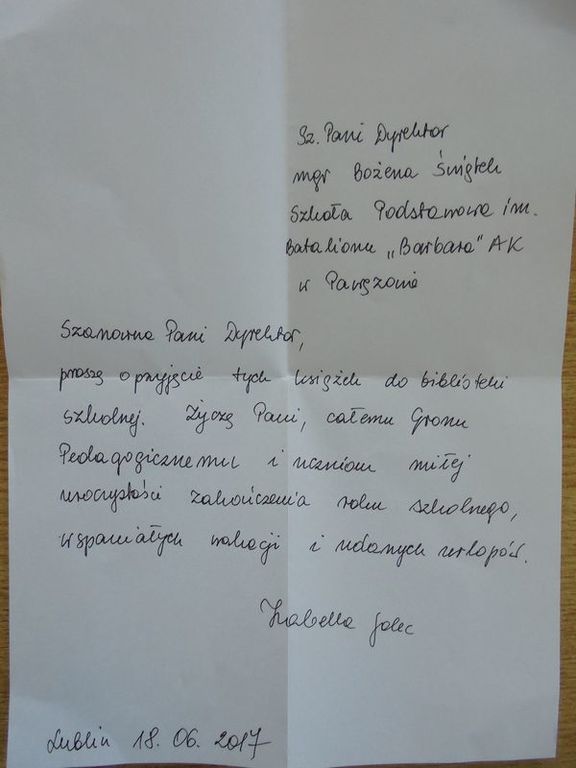 Sz. Pani Dyrektor
mgr Bożena Świątek
Szkoła Podstawowa im.
Batalionu „Barbara" AK
w Pawęzowie
Szanowna Pani Dyrektor,
proszę o przyjęcie tych książek do biblioteki
szkolnej. Życzę Pani, całemu Gronu
Pedagogicznemu i uczniom miłej
uroczystości zakończenia roku szkolnego,
wspaniałych wakacji i udanych urlopów.
Izabella Golec
Lublin 18.06.2017